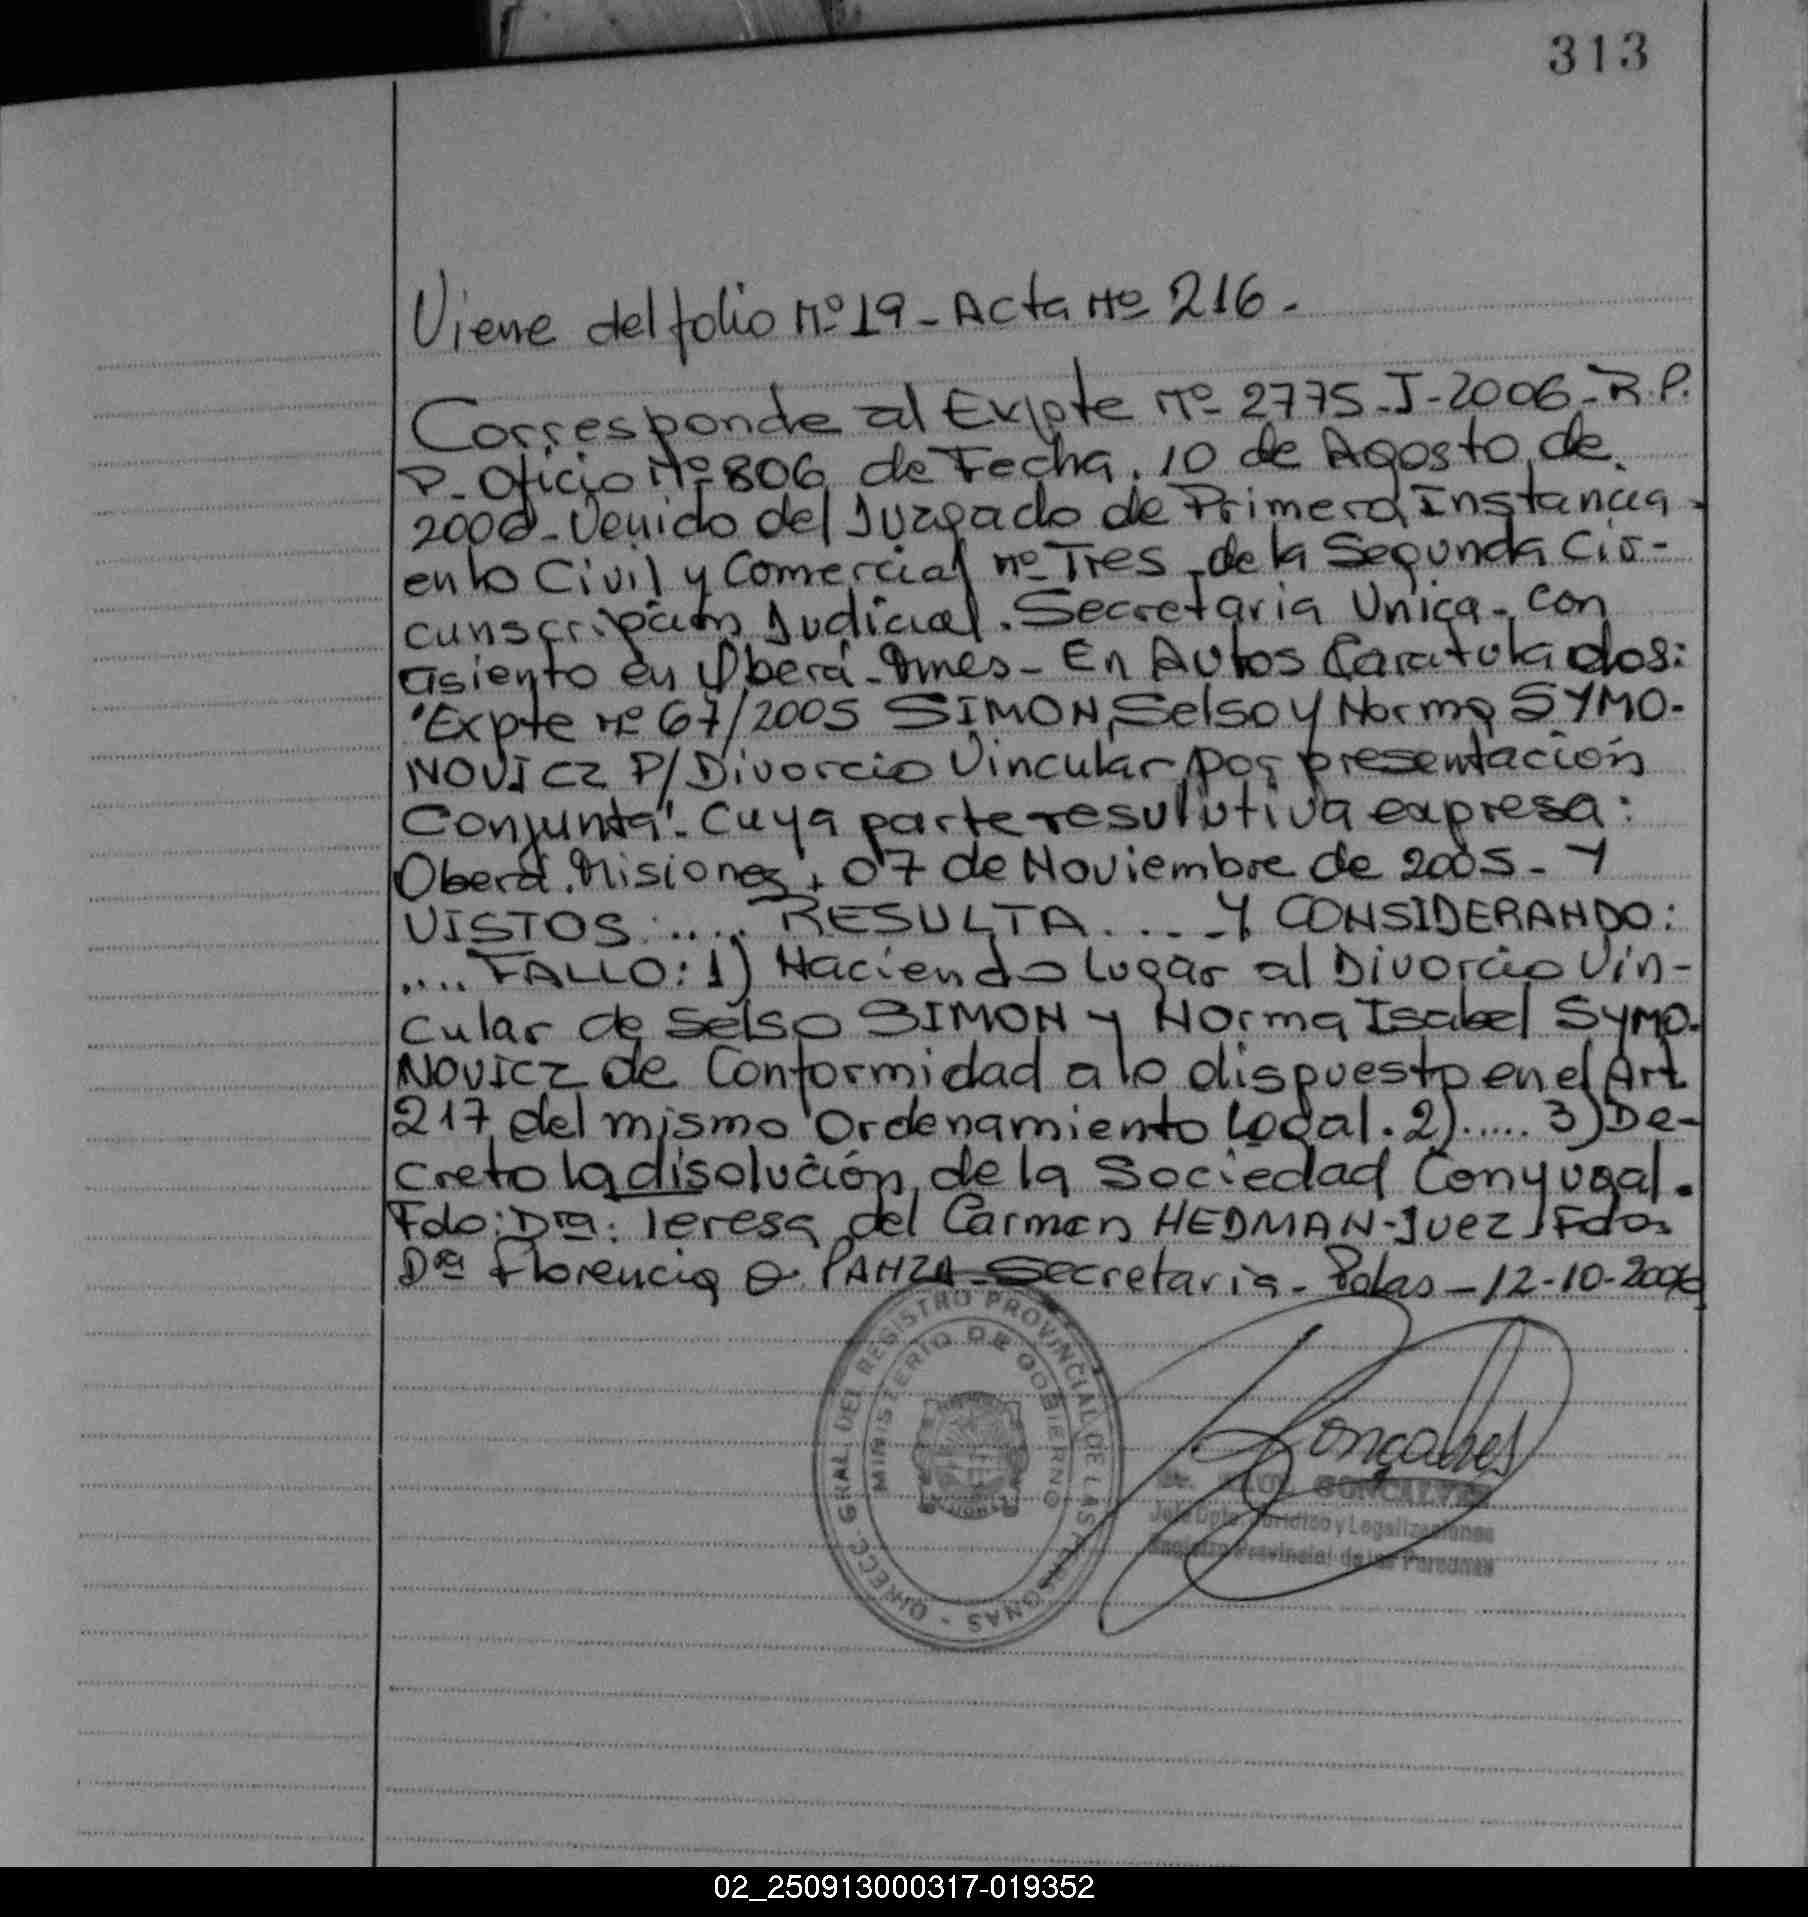 313
Viene del folio Nº 19 - Acta Nº 216.
Corresponde al Expte Nº 2775-J-2006-R.P.
P. Oficio Nº 806 de Fecha, 10 de Agosto, de.
2006- Venido del Juzgado de Primera Instancia
en lo Civil y Comercial nº Tres de la Segunda Cir-
cunscripción Judicial. Secretaria Unica- con
asiento en Oberá- Mnes- En Autos Caratulados:
"Expte Nº 67/2005 SIMON, Selso y Norma SYMO-
NOVICZ P/Divorcio Vincular por presentación
Conjunta". Cuya parte resulutiva expresa:
Oberá. Misiones, 07 de Noviembre de 2005- Y
VISTOS: .... RESULTA .... Y CONSIDERANDO:
.... FALLO: 1) Haciendo lugar al Divorcio Vin-
cular de Selso SIMON y Norma Isabel SYMO-
NOVICZ de Conformidad a lo dispuesto en el Art
217 del mismo Ordenamiento legal. 2)..... 3) De-
creto la disolución, de la Sociedad Conyugal.
Fdo: Dra. Teresa del Carmen HEDMAN-Juez Fdo.
Dra Florencia O. PANZA- Secretaria- Pdas- 12-10-2006
DIRECC. GRAL DEL REGISTRO PROVINCIAL DE LAS PERSONAS -
MINISTERIO DE GOBIERNO
Gonçalves
GONCALVES
Jefe Dpto. Jurídico y Legalizaciones
Registro Provincial de las Personas
02_250913000317-019352